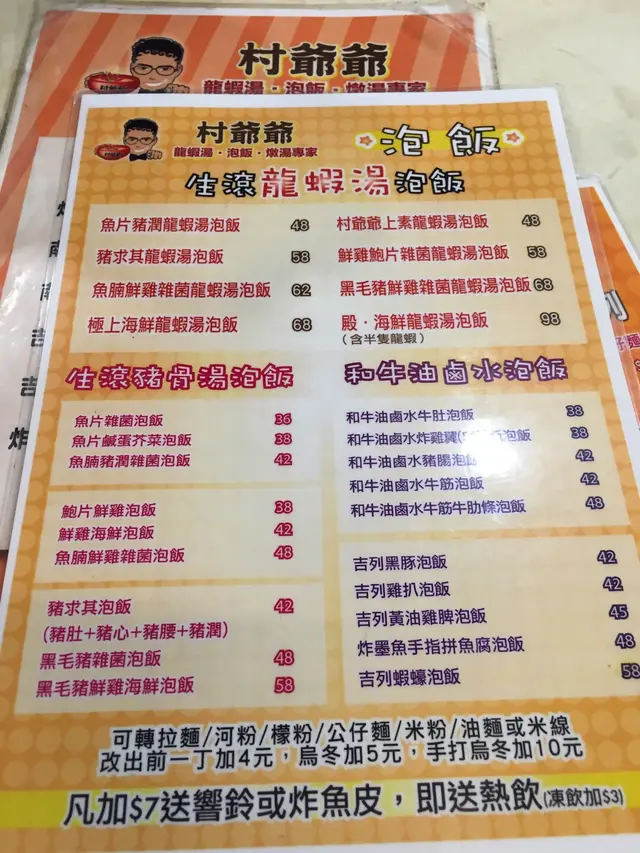 村爺爺
龍蝦湯・泡飯・燉湯專家
村爺爺
龍蝦湯・泡飯・燉湯專家
泡飯
生滾龍蝦湯泡飯
魚片豬潤龍蝦湯泡飯 48
豬求其龍蝦湯泡飯 58
魚腩鮮雞雜菌龍蝦湯泡飯 62
極上海鮮龍蝦湯泡飯 68
村爺爺上素龍蝦湯泡飯 48
鮮雞鮑片雜菌龍蝦湯泡飯 58
黑毛豬鮮雞雜菌龍蝦湯泡飯 68
殿・海鮮龍蝦湯泡飯 98
(含半隻龍蝦)
生滾豬骨湯泡飯
魚片雜菌泡飯 36
魚片鹹蛋芥菜泡飯 38
魚腩豬潤雜菌泡飯 42
鮑片鮮雞泡飯 38
鮮雞海鮮泡飯 42
魚腩鮮雞雜菌泡飯 48
豬求其泡飯 42
(豬肚+豬心+豬腰+豬潤)
黑毛豬雜菌泡飯 48
黑毛豬鮮雞海鮮泡飯 58
和牛油鹵水泡飯
和牛油鹵水牛肚泡飯 38
和牛油鹵水炸雞 泡飯 38
和牛油鹵水豬腸泡飯 42
和牛油鹵水牛筋泡飯 42
和牛油鹵水牛筋牛肋條泡飯 48
吉列黑豚泡飯 42
吉列雞扒泡飯 42
吉列黃油雞脾泡飯 45
炸墨魚手指拼魚腐泡飯 48
吉列蝦蠔泡飯 58
可轉拉麵/河粉/檬粉/公仔麵/米粉/油麵或米線
改出前一丁加4元，烏冬加5元，手打烏冬加10元
凡加$7送響鈴或炸魚皮，即送熱飲(凍飲加$3)
南
吉
吉
炸
列